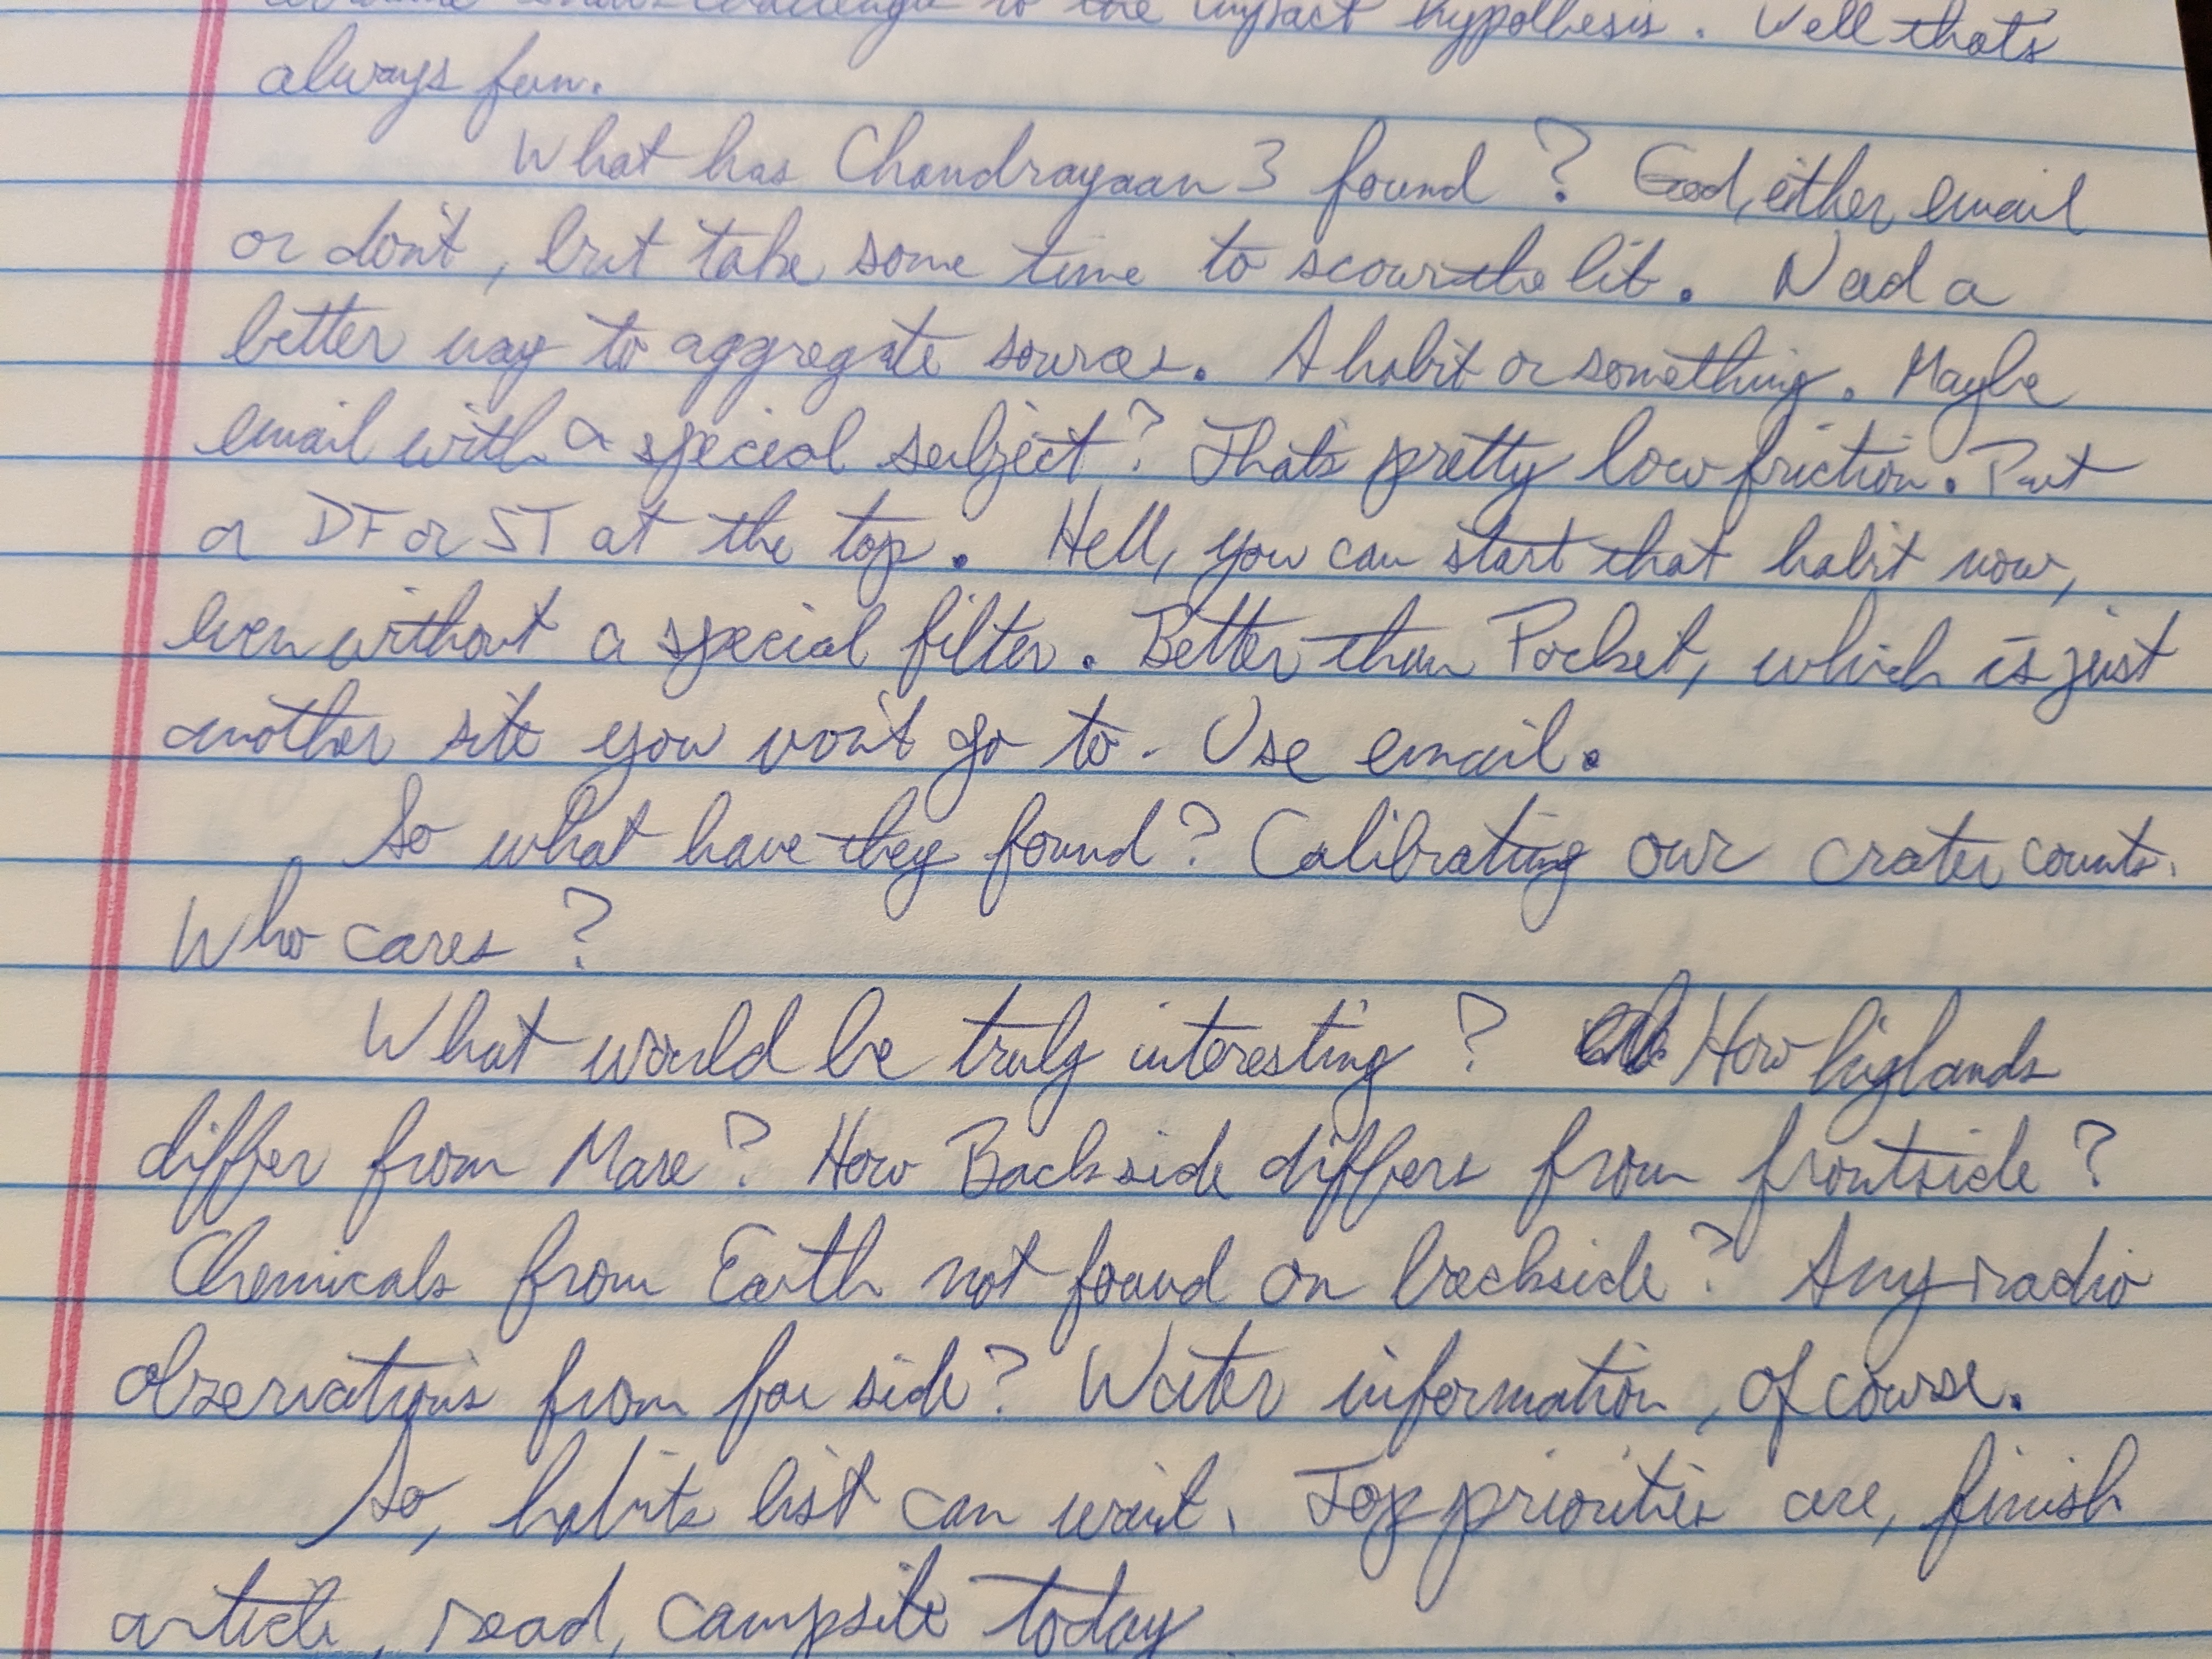 to the impact hypothesis. Well that's
always fun.
What has Chandrayaan 3 found? God, either email
or don't, but take some time to scour the lit. Need a
better way to aggregate sources. A habit or something. Maybe
email with a special subject? That's pretty low friction. Put
a DF or ST at the top. Hell, you can start that habit now,
even without a special filter. Better than Pocket, which is just
another site you won't go to. Use email.
So what have they found? Calibrating our crater counts.
Who cares?
What would be truly interesting? How higlands
differ from Mare? How Backside differs from frontside?
Chemicals from Earth not found on backside? Any radio
observations from far side? Water information, of course.
So, habits list can wait. Top priorities are, finish
article, read, campsite today.